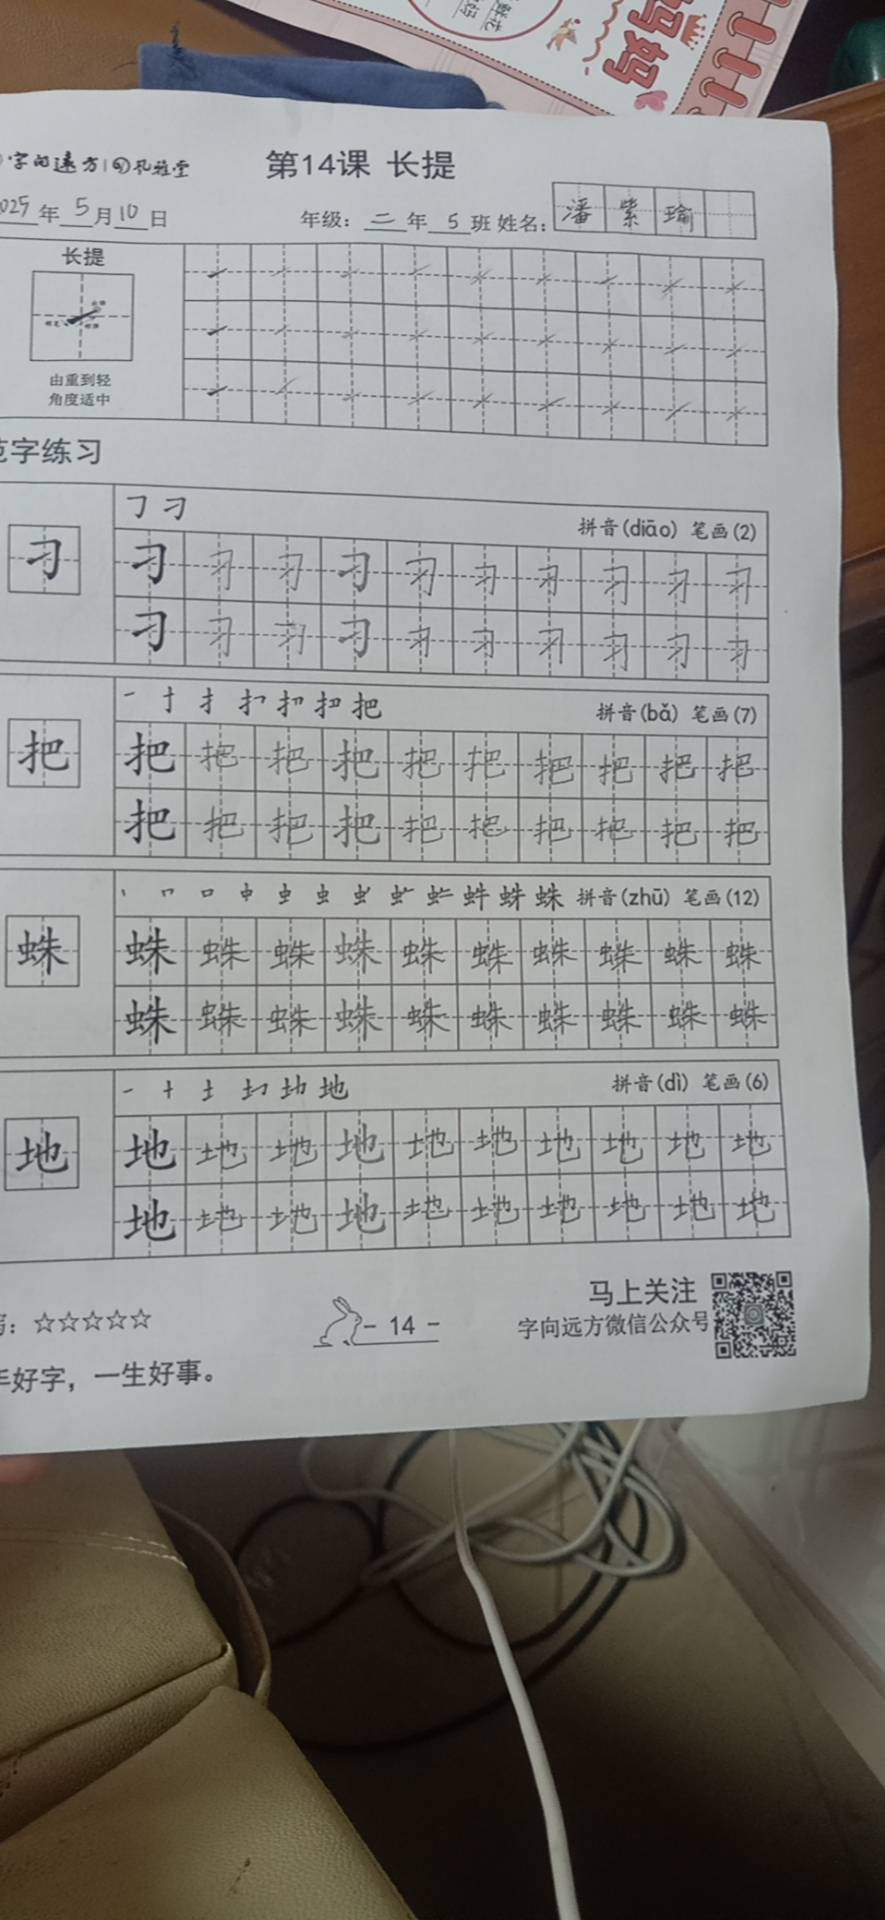 妈妈
字向远方 孔雅堂
第14课 长提
2025年5月10日 年级：二年5班 姓名：潘紫瑜
长提
由重到轻
角度适中
范字练习
㇆ 刁
拼音(diāo) 笔画(2)
刁 刁刁刁刁刁刁刁刁刁刁
刁刁刁刁刁刁刁刁刁刁
拼音(bǎ) 笔画(7)
把 把把把把把把把把把把
把把把把把把把把把把
拼音(zhū) 笔画(12)
蛛 蛛蛛蛛蛛蛛蛛蛛蛛蛛蛛
蛛蛛蛛蛛蛛蛛蛛蛛蛛蛛
拼音(dì) 笔画(6)
地 地地地地地地地地地地
地地地地地地地地地地
☆☆☆☆☆
- 14 -
马上关注
字向远方微信公众号
手好字，一生好事。